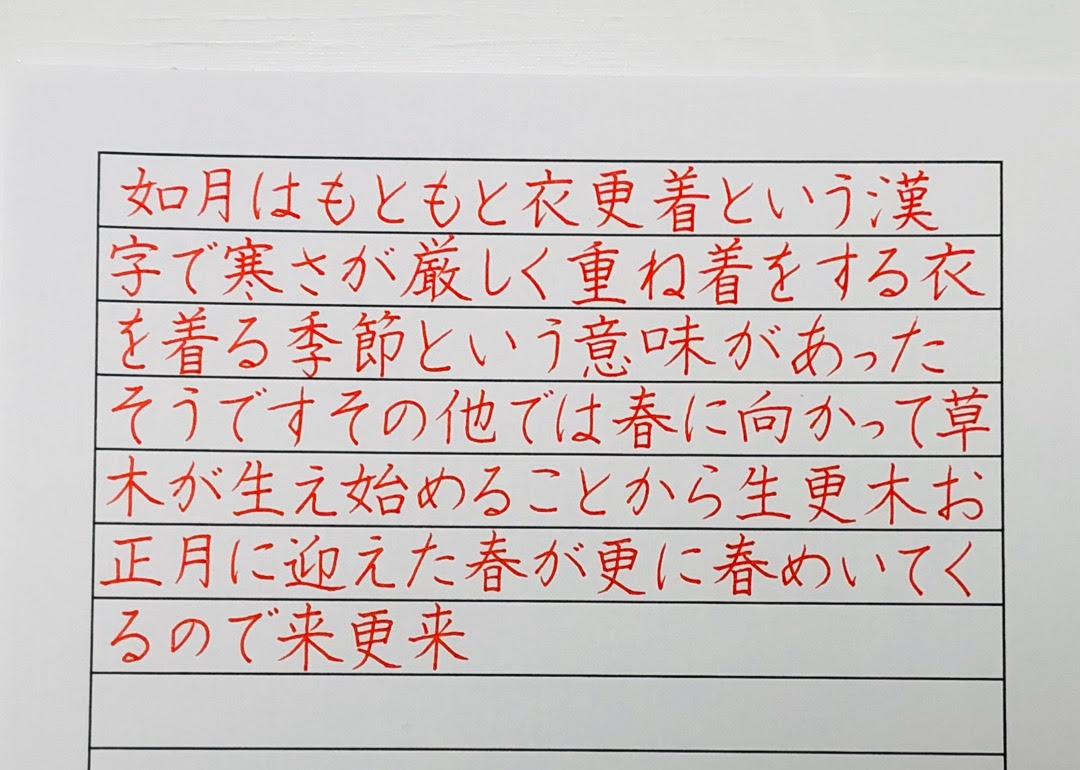 如月はもともと衣更着という漢
字で寒さが厳しく重ね着をする衣
を着る季節という意味があった
そうですその他では春に向かって草
木が生え始めることから生更木お
正月に迎えた春が更に春めいてく
るので来更来